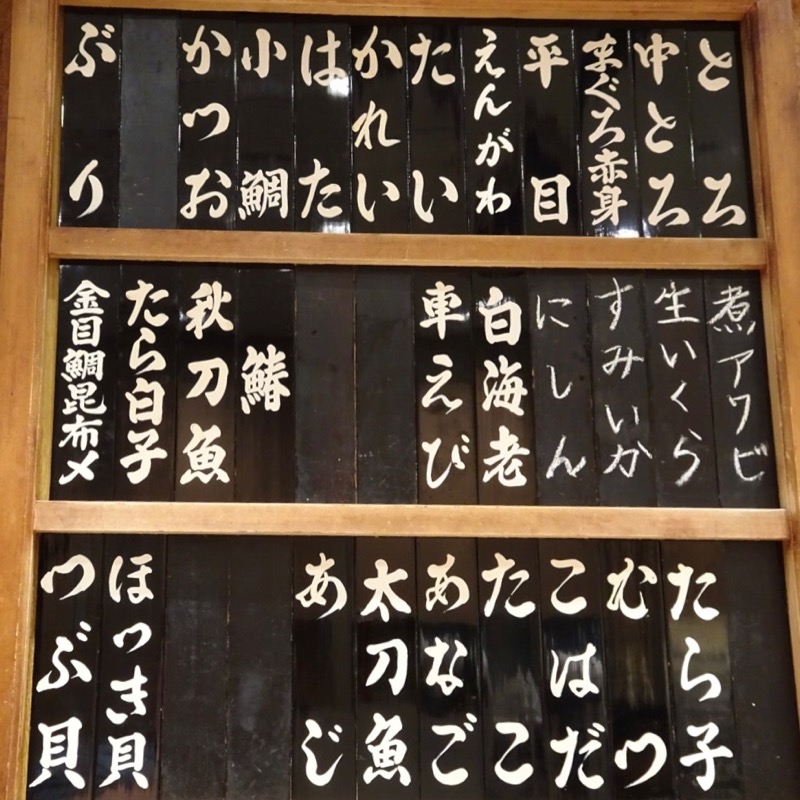 とろ
中とろ
まぐろ赤身
平目
えんがわ
たい
かれい
はた
小鯛
かつお
ぶり
煮アワビ
生いくら
すみいか
にしん
白海老
車えび
鰆
秋刀魚
たら白子
金目鯛昆布〆
たら子
むつ
こはだ
たこ
あなご
太刀魚
あじ
ほっき貝
つぶ貝